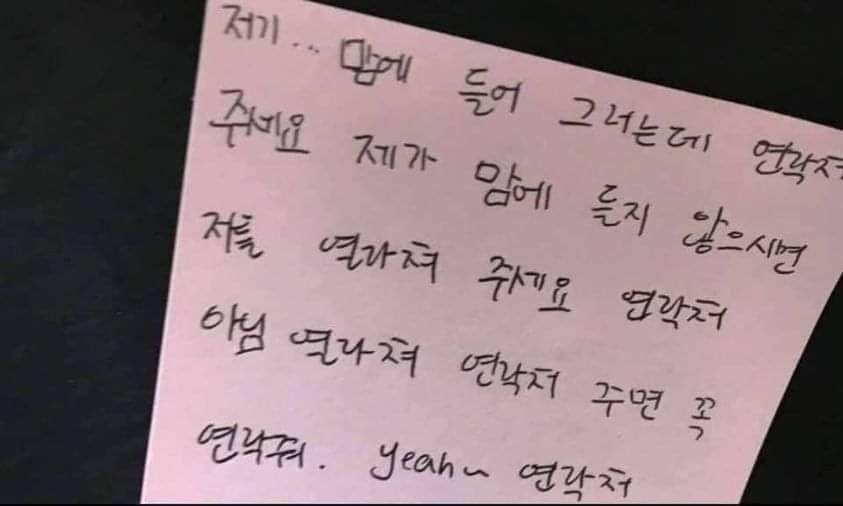 저기... 맘에 들어 그러는데 연락처
줘세요 제가 맘에 들지 않으시면
저를 열라쳐 주세요 연락처
아님 열라쳐 연락처 주면 꼭
연락줘. yeah~ 연락처